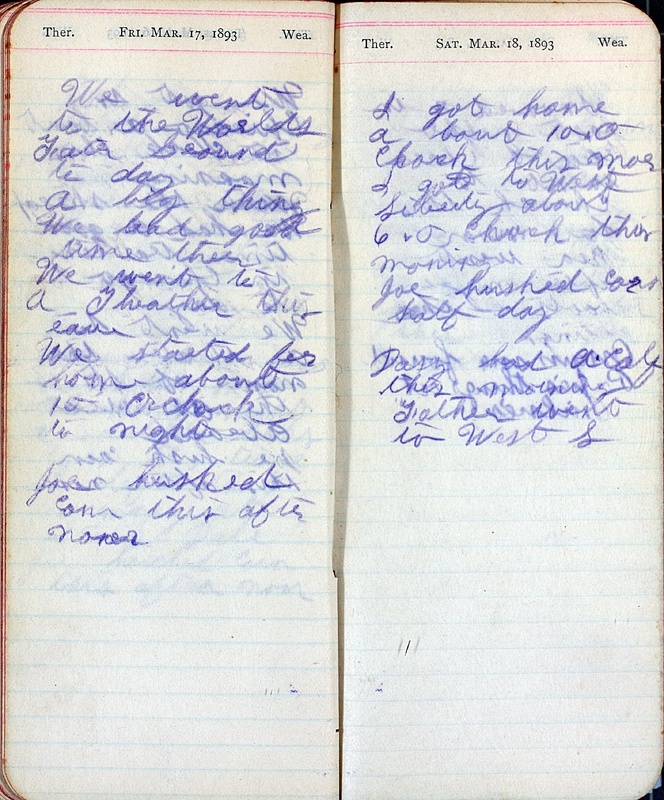 Ther. Fri. Mar. 17, 1893 Wea.
We went
to the Worlds
Fair Ground
to day
a big thing
We had good
time ther
We went to
a Theather this
eave
We started for
hom about
10 Oclock
to night
Joe husked
Corn this after
noon
Ther. Sat. Mar. 18, 1893 Wea.
I got home
a bout 10.0
Clock this mor
I got to West
Liberty about
6.0 Clock this
monin
Joe husked Corn
half day
Dasy had a calf
this morning
Father went
to West L